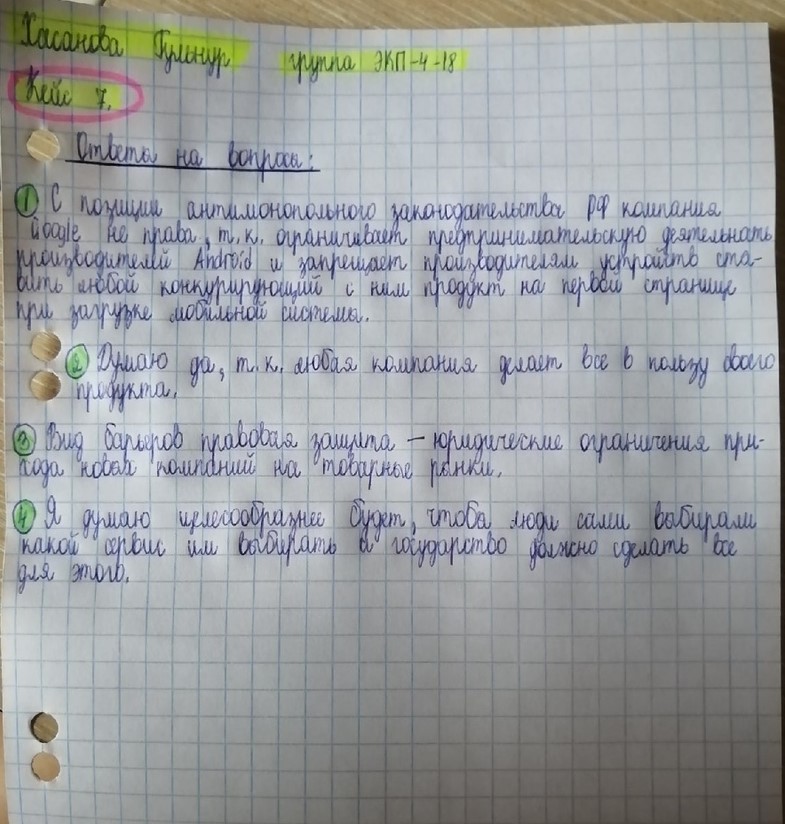 Хасанова Гульнур группа ЭКП-4-18
Кейс 7.
Ответы на вопросы:
1 С позиции антимонопольного законодательства РФ компания
Google не права, т.к. ограничивает предпринимательскую деятельность
производителей Android и запрещает производителям устройств ста-
вить любой конкурирующий с ним продукт на первой странице
при загрузке мобильной системы.
2 Думаю да, т.к. любая компания делает все в пользу своего
продукта.
3 Вид барьеров правовая защита – юридические ограничения при-
хода новых компаний на товарные рынки.
4 Я думаю целесообразнее будет, чтобы люди сами выбирали
какой сервис им выбирать а государство должно сделать все
для этого.